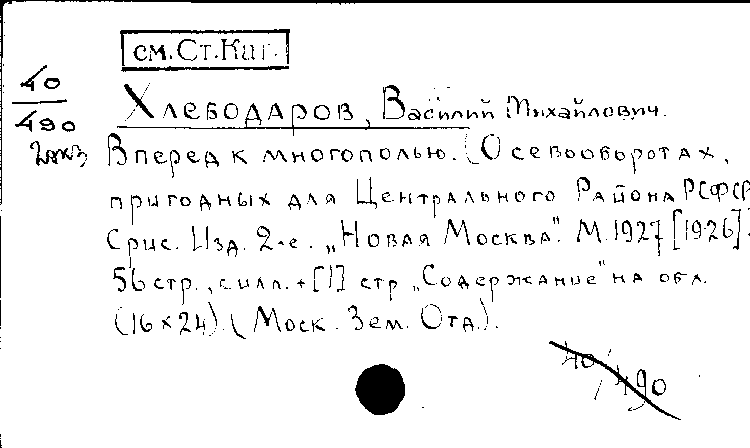 см. Ст. Кат.
40
490
2 экз
Хлебодаров, Василий Михайлович.
Вперед к многополью. (О севооборотах,
пригодных для Центрального Района РСФСР
С рис. Изд. 2-е. „Новая Москва". М. 1927 [1926].
56 стр., с илл. + [1] стр „Содержание" на обл.
(16 × 24). (Моск. Зем. Отд.).
40/490